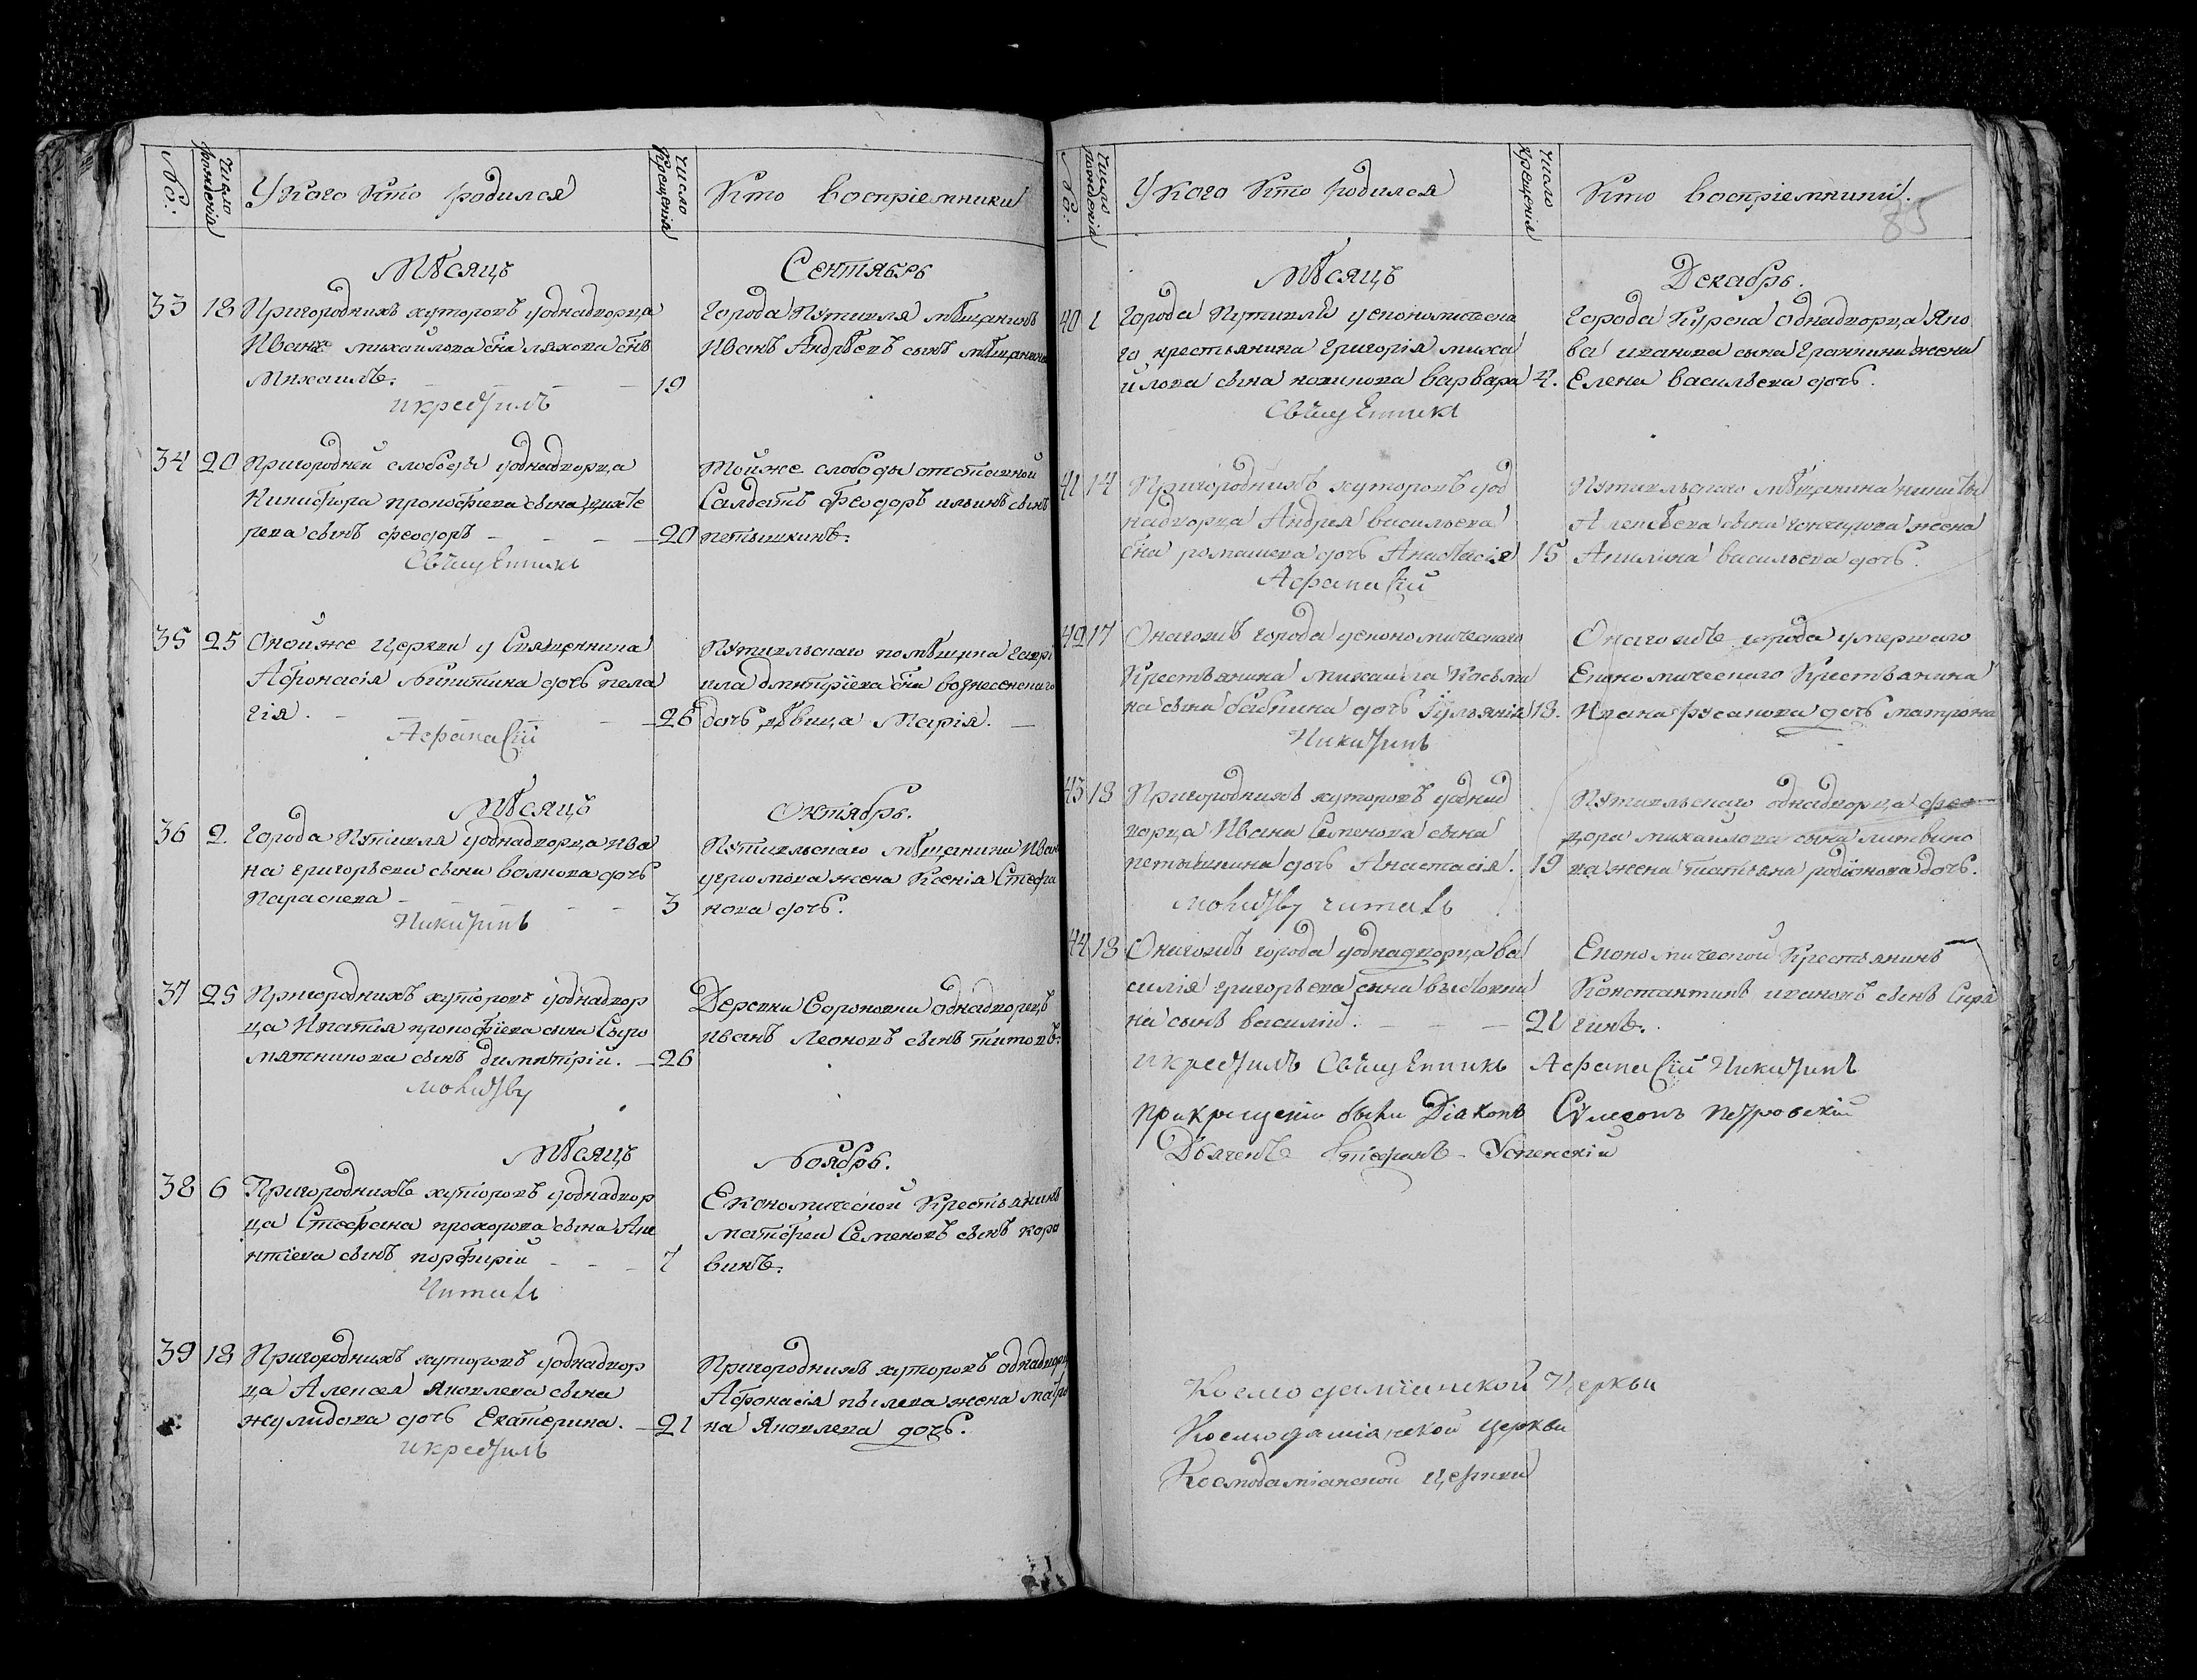 №:
Число рожденія
У кого кто родился
Число Крещенія
Кто воспріемники
Мѣсяцъ
Сентябрь
33
18
Пригороднихъ хуторовъ уоднадворца
Ивана михайлова сна ляхова снъ
Михаилъ.
19
Города Путивля мѣщанинъ
Иванъ Андрѣевъ сынъ
и крестилъ
34
20
Пригородней слободы уоднадворца
Никифора прокофьева сына
рева сынъ феодоръ
20
тойже слободы отставной
Салдатъ Феодоръ ильинъ сынъ
петышкинъ.
Священникъ
35
25
Онойже церкви у Священника
Афонасія Никитина дочь пела
гія.
26
Путивльскаго помѣщика гаврі
ила дмитріева сна вознесенскаго
дочь дѣвица Марія.
Афанасій
Мѣсяцъ
Октябрь.
36
2
Города Путивля уоднадворца ива
на григорьева сына волкова дочь
Параскева
3
Путивльскаго мѣщанина Иван
жена Ксенія Стефа
нова дочь.
Никитинъ
37
25
Пригороднихъ хуторовъ уоднадвор
ца Ипатія прокофіева сына Сыро
мятникова сынъ димитрій.
26
Деревни Сороковки однадворецъ
иванъ Леоновъ сынъ титовъ.
молитву
Мѣсяцъ
Ноябрь.
38
6
Пригороднихъ хуторовъ уоднадвор
ца Стефана прохорова сына Аки
нтіева сынъ порфирій
7
Економической Крестьянинъ
матфей Семеновъ сынъ коро
винъ.
Читалъ
39
18
Пригороднихъ хуторовъ уоднадвор
ца Алексея Яковлева сына
жулидова дочь Екатерина.
21
Пригороднихъ хуторовъ однадворц
Афонасія пылева жена матро
на Яковлева дочь.
и крестилъ
№:
Число рожденія
У кого кто родился
Число крещенія
Кто воспріемники.
85
Мѣсяцъ
Декабрь.
40
1
Города Путивля уекономическа
го крестьянина григорія миха
йлова сына новикова варвара
4.
Города Курска однадворца Яко
ва иванова сына жена
Елена васильева дочь.
Священникъ
41
14
Пригороднихъ хуторовъ уод
надворца Андрея васильева
сна ромашева дочь Анастасія
15
Путивльскаго мѣщанина никиты
Алексѣева сына гончарова жена
Акилина васильева дочь.
Афанасій
42
17
Онагожъ города уекономическаго
Крестьянина михаила Косьми
на сына бабкина дочь Іульянія
18.
Онагожъ города умершаго
Економическаго Крестьянина
Ивана русанова дочь матрона
Никитинъ
43
18
Пригороднихъ хуторовъ уоднад
ворца Ивана Семенова сына
петышкина дочь Анастасія.
19
Путивльскаго однадворца фео
дора михайлова сына литвино
ва жена татьяна родіонова дочь.
молитву читалъ
44
18
Онагожъ города уоднадворца ва
силія григорьева сына
на сынъ василій.
21
Економической Крестьянинъ
Константинъ ивановъ сынъ Сиря
гинъ.
и крестилъ Священникъ Афанасій Никитинъ
при крещеніи были Діаконъ Сѵмеонъ Петровскій
Дьячекъ Стефанъ Успенскій
Космодаміанской Церкви
Космодаміанской церкви
Космодаміанской церкви